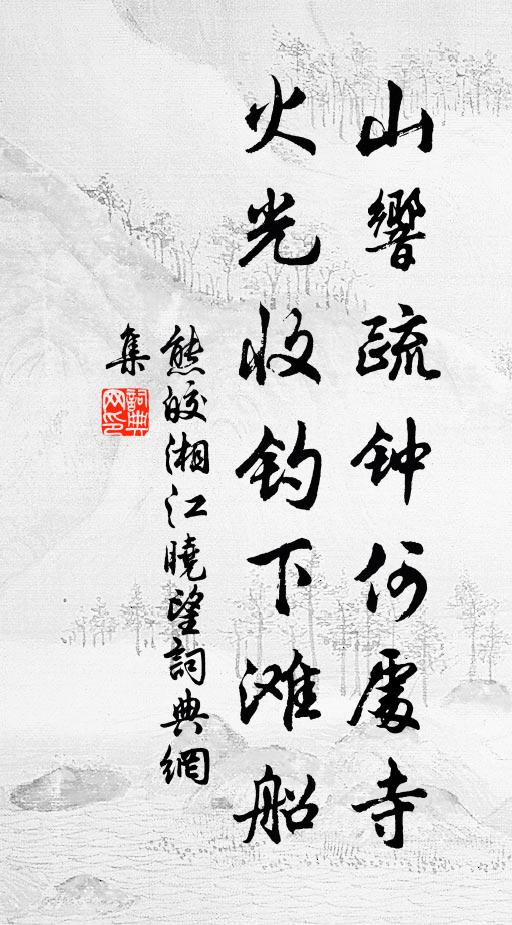 山響疏钟何處寺
火光收钓下滩船
熊皎湘江曉望詞典網
集
詞典
网印